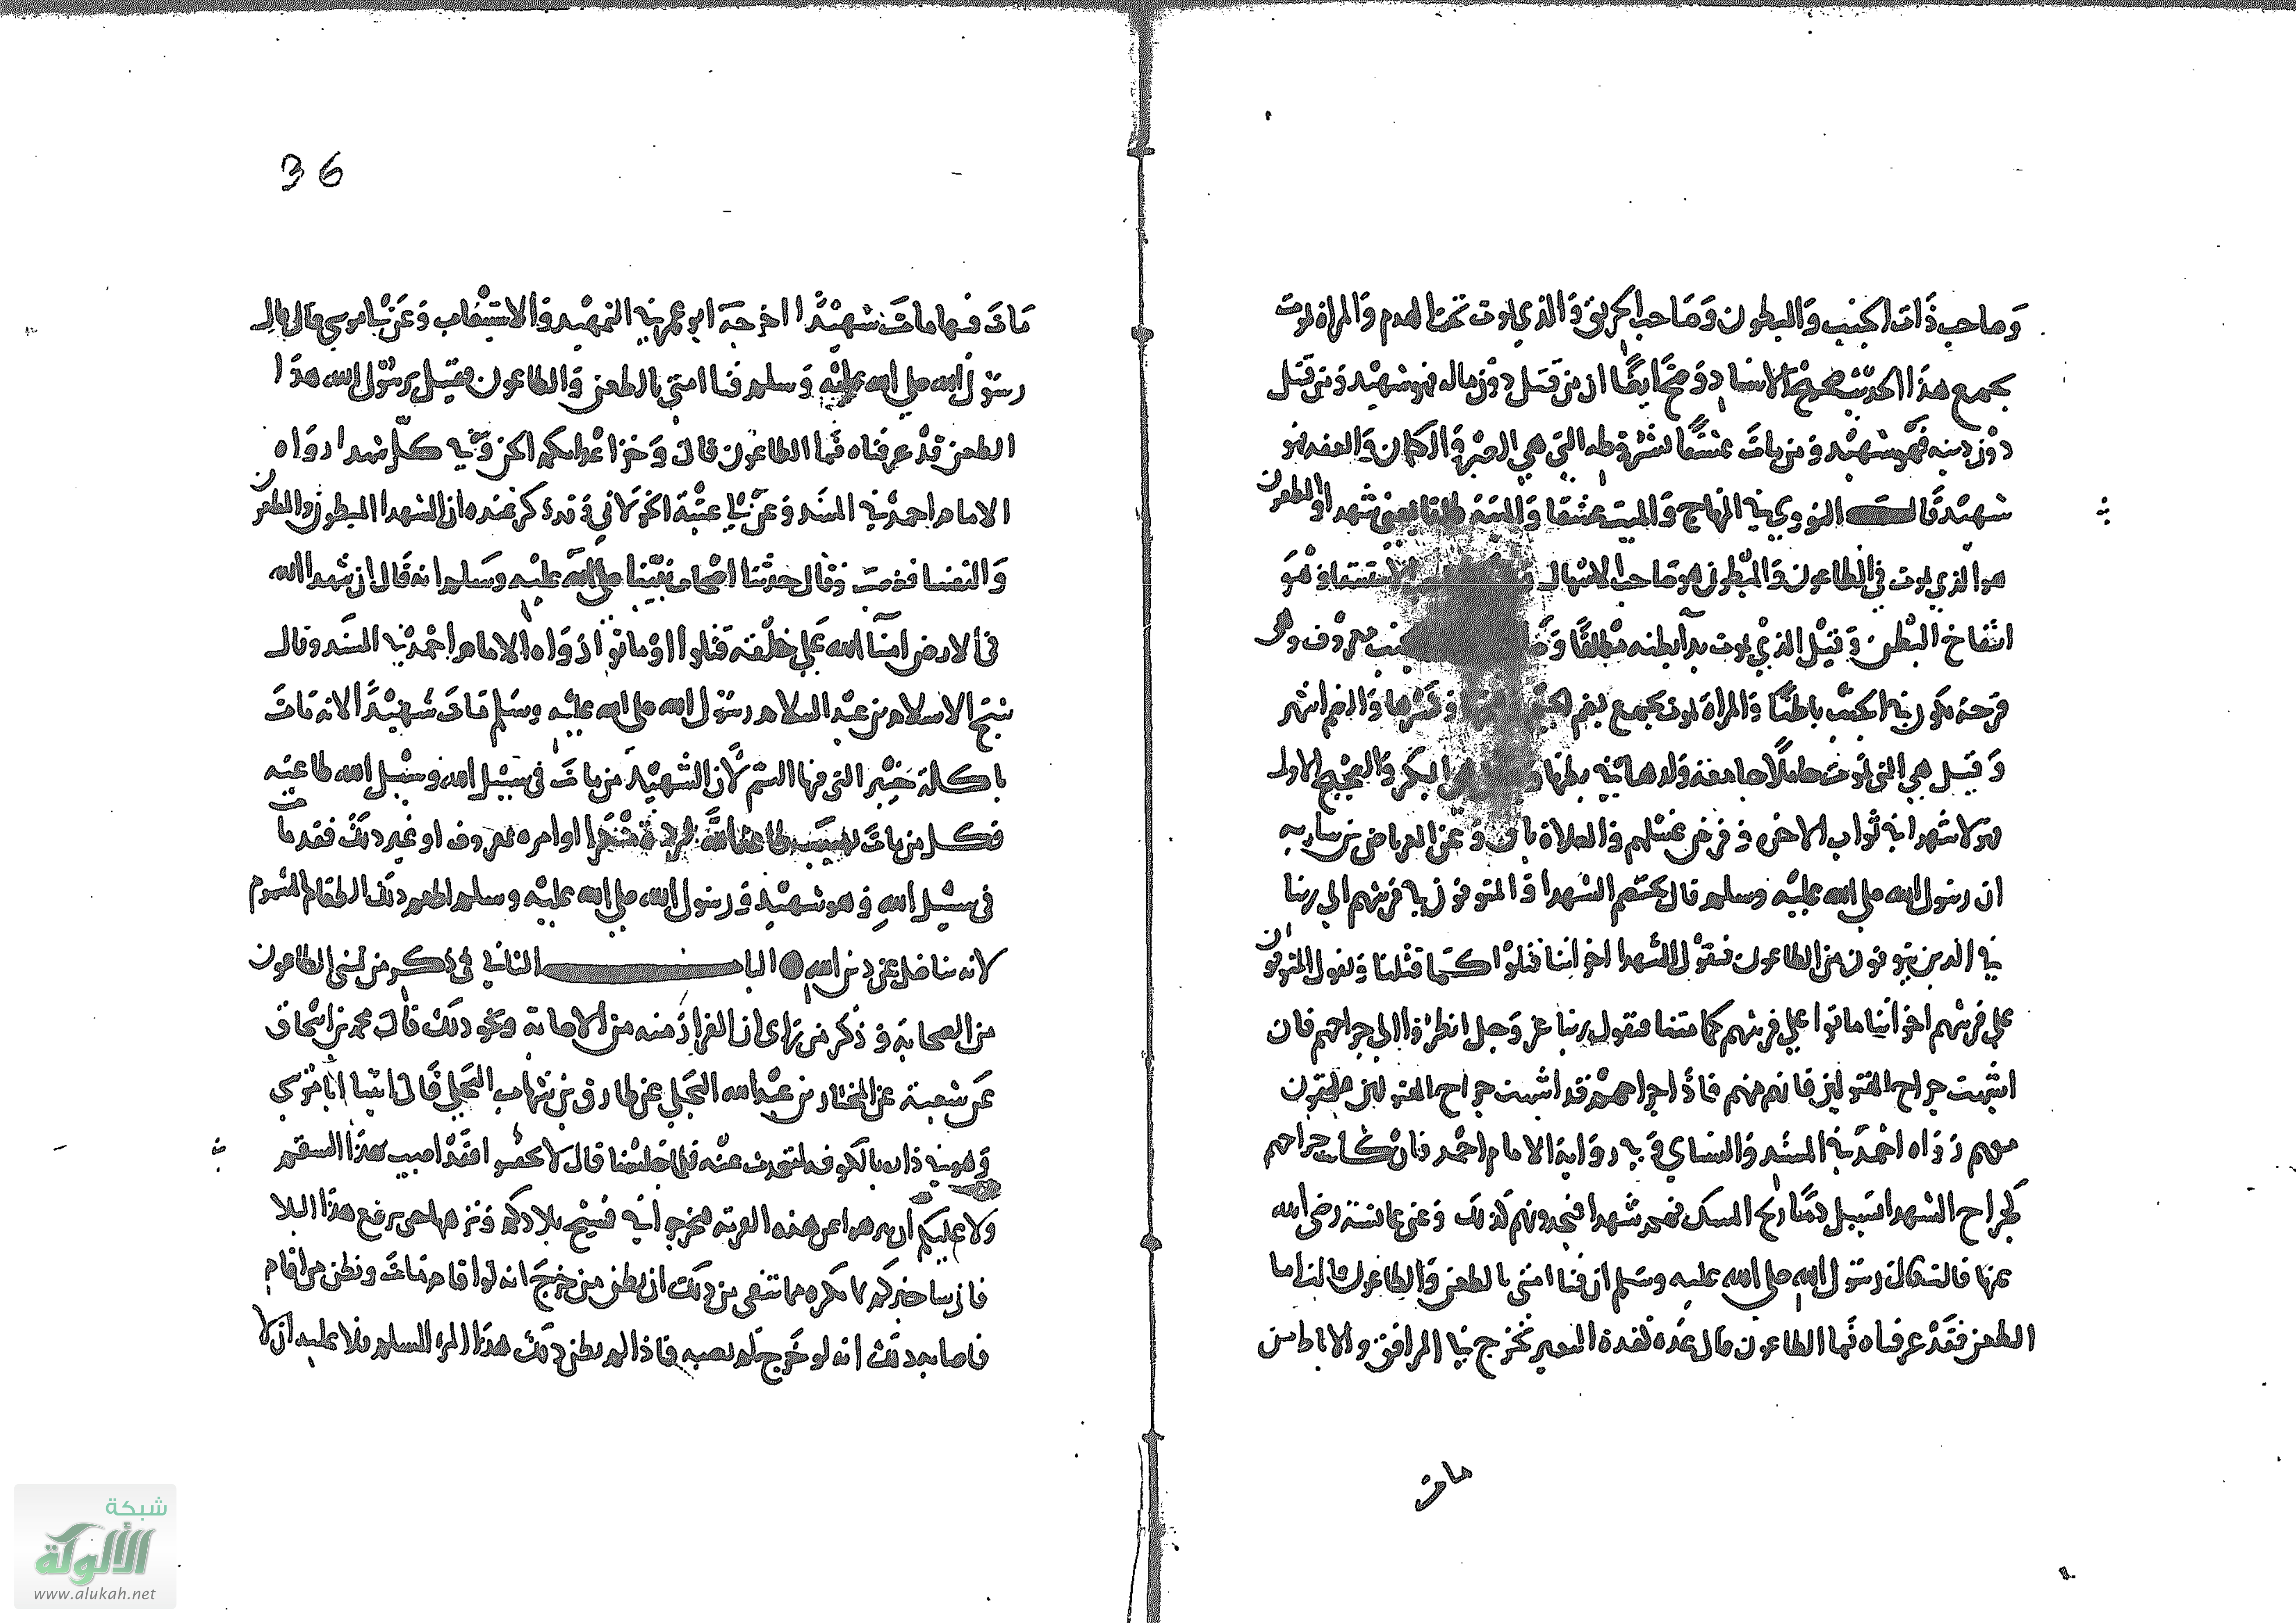 وصاحب ذات الجنب والمبطون وصاحب الحريق والذي يموت تحت الهدم والمراة تموت
بجمع هذا الحديث صحيح الاسناد وصح ايضا ان من قتل دون ماله فهو شهيد ومن قتل
دون دينه فهو شهيد ومن مات عشقا بشروطه التي هي الصبر والكتمان والعفه فهو
شهيد قال النووي في المنهاج والميت عشقا والميتة طلقا شهدا والمطعون
هو الذي يموت في الطاعون والمبطون هو صاحب الاسهال الاستسقا وهو
انتفاخ البطن وقيل الذي يموت بدآ بطنه مطلقا معروف وهي
قرحة تكون في الجنب باطنا والمراة تموت بجمع بضم وكسرها والضم اشهر
وقيل هي التي تموت حاملا جامعة ولدها في بطنها البكر والصحيح الاول
هولا شهدا في ثواب الاخرى وعن العرباض بن ساريه
ان رسول الله صلى الله عليه وسلم قال يختصم الشهدا والمتوفون على فرشهم الى ربنا
في الذين يتوفون من الطاعون فيقول الشهدا اخواننا قتلوا كما قتلنا ويقول المتوفون
على فرشهم اخواننا ماتوا على فرشهم كما متنا فيقول ربنا عز وجل انظروا الى جراحهم فان
اشبهت جراح المقتولين فانهم منهم فاذا جراحهم قد اشبهت جراح المقتولين
منهم رواه احمد في المسند والنساي وفي رواية الامام احمد فان كانت جراحهم
كجراح الشهدا تسيل دما ريح المسك فهم شهدا فيجدونهم كذلك وعن عائشة رضي الله
عنها قالت قال رسول الله صلى الله عليه وسلم ان فنا امتي بالطعن والطاعون قالت اما
الطعن فقد عرفناه فما الطاعون قال غده كغدة البعير تخرج في المراق والاباط من
مات
36
مات فيها مات شهيدا اخرجه ابو عمر في التمهيد والاستيعاب وعن ابي موسى قال قال
رسول الله صلى الله عليه وسلم فنا امتي بالطعن والطاعون فقيل يرسول الله هذا
الطعن قد عرفناه فما الطاعون قال وخز اعدايكم الجن وفي كل شهدا رواه
الامام احمد في المسند وعن ابي عتبة الخولاني وقد ذكر عنده ان الشهدا المبطون والمطعون
والنفسا فغضب وقال حدثنا اصحاب نبينا صلى الله عليه وسلم انه قال ان شهدا الله
في الارض امنآ الله على خلقه قتلوا او ماتوا رواه الامام احمد في المسند وقال
شيخ الاسلام بن عبد السلام رسول الله صلى الله عليه وسلم مات شهيدا لانه مات
باكلة خيبر التي فيها السم لان الشهيد من مات في سبيل الله وسبيل الله طاعته
فكل من مات اوامره بمعروف او غير ذلك فقد مات
في سبيل الله وهو شهيد ورسول الله صلى الله عليه وسلم اطعم ذلك الطعام المسموم
لانه مناضل عن دين الله الباب الثاني في ذكر من لقي الطاعون
من الصحابة وذكر من راى ان الفرار منه من الاصابة ونحو ذلك قال محمد بن اسحاق
عن شعبة عن المختار بن عبد الله البجلي عن طارق بن شهاب البجلي قال اتينا ابا موسي
وهو في داره بالكوفه لنتحدث عنده فلما جلسنا قال لا تخفوا فقد اصيب بهذا السقم
ولا عليكم ان تنزهوا عن هذه القرية فتخرجوا في فسيح بلادكم ونزهها حتى يرفع هذا البلا
فاني ساخبركم بما يكره مما يتقى من ذلك ان يظن من خرج انه لو اقام مات ويظن من اقام
فاصابه ذلك انه لو خرج لم يصبه فاذا لم يظن ذلك هذا المر المسلم فلا عليه ان لا
شبكة
الألوكة
www.alukah.net